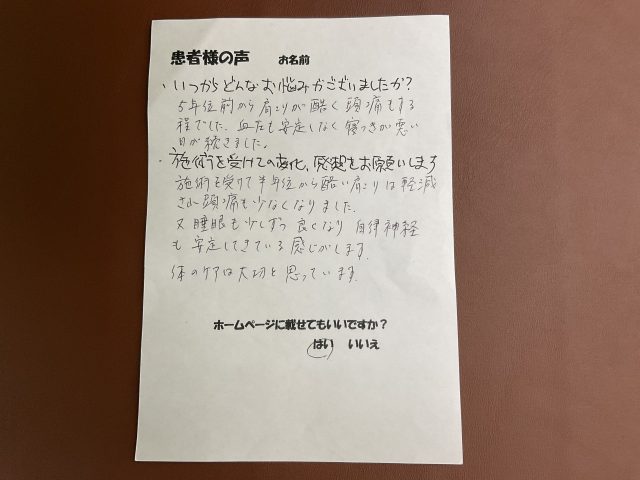 患者様の声 お名前
・いつからどんなお悩みがございましたか?
5年位前から肩こりが酷く頭痛もする
程でした。血圧も安定しなく寝つきが悪い
日が続きました。
・施術を受けての変化、感想をお願いします
施術を受けて半年位から酷い肩こりは軽減
され頭痛も少なくなりました。
又睡眠も少しずつ良くなり自律神経
も安定してきている感じがします。
体のケアは大切と思っています。
ホームページに載せてもいいですか?
はい いいえ